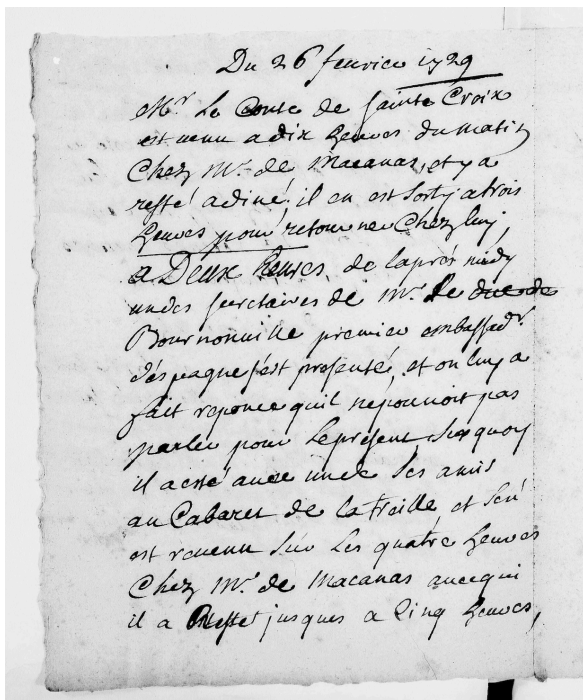 Du 26 feurier 1729
Mr. Le Conte de Sainte Croix
est uenu a dix heures du matin
Chez Mr. de Macanas, et y a
resté a diné, il en est sorty a trois
heures pour retourner Chez luy,
a Deux heures de laprés midy
un des secretaires de Mr. Le duc de
Bournonuille premier embassadr.
déspagne sést presenté, et on luy a
fait reponce quil ne pouuoit pas
parler pour le present surquoy
il a esté auec un de ses amis
au Cabaret de la treille et sén
est reuenu sur les quatre heures
Chez Mr. de Macanas auec qui
il a resté jusques a Cinq heures,